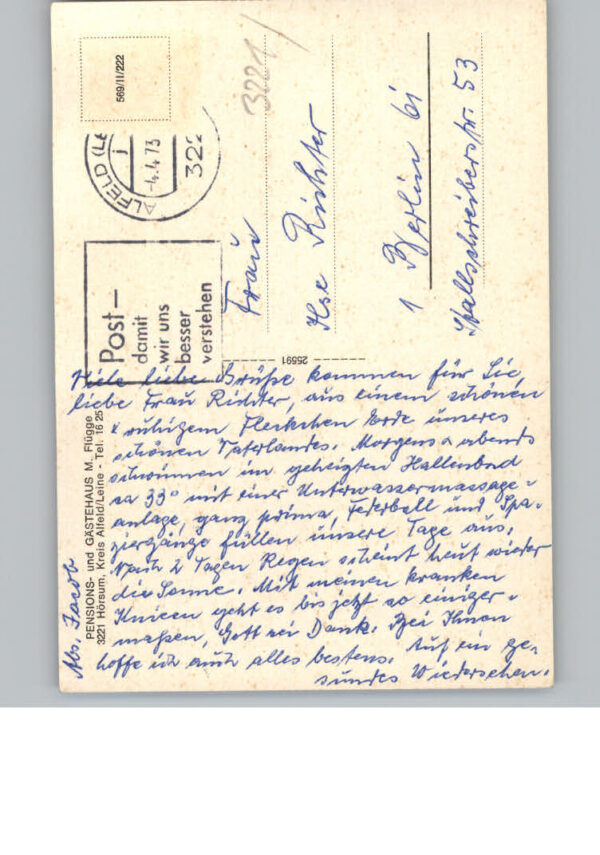 569/11/222
ALFELD (LE
j
-4.4.73
322
3221
Post–
damit
wir uns
besser
verstehen
Frau
Ilse Richter
1 Berlin 61
Stallschreiberstr. 53
25591
PENSIONS- und GÄSTEHAUS M. Flügge
3221 Hörsum, Kreis Alfeld/Leine - Tel. 16 25
Abs. Jacob
Viele liebe Grüße kommen für Sie,
liebe Frau Richter, aus einem schönen
x ruhigem Fleckchen Erde unseres
schönen Vaterlandes. Morgens u abends
schwimmen im geheizten Hallenbad
ca 33° mit einer Unterwassermassage=
anlage, ganz prima, Federball und Spa-
ziergänge füllen unsere Tage aus.
Nach 2 Tagen Regen scheint heut wieder
die Sonne. Mit meinen kranken
Knieen geht es bis jetzt so einiger=
maßen, Gott sei Dank. Bei Ihnen
hoffe ich auch alles bestens. Auf ein ge-
sundes Wiedersehen.